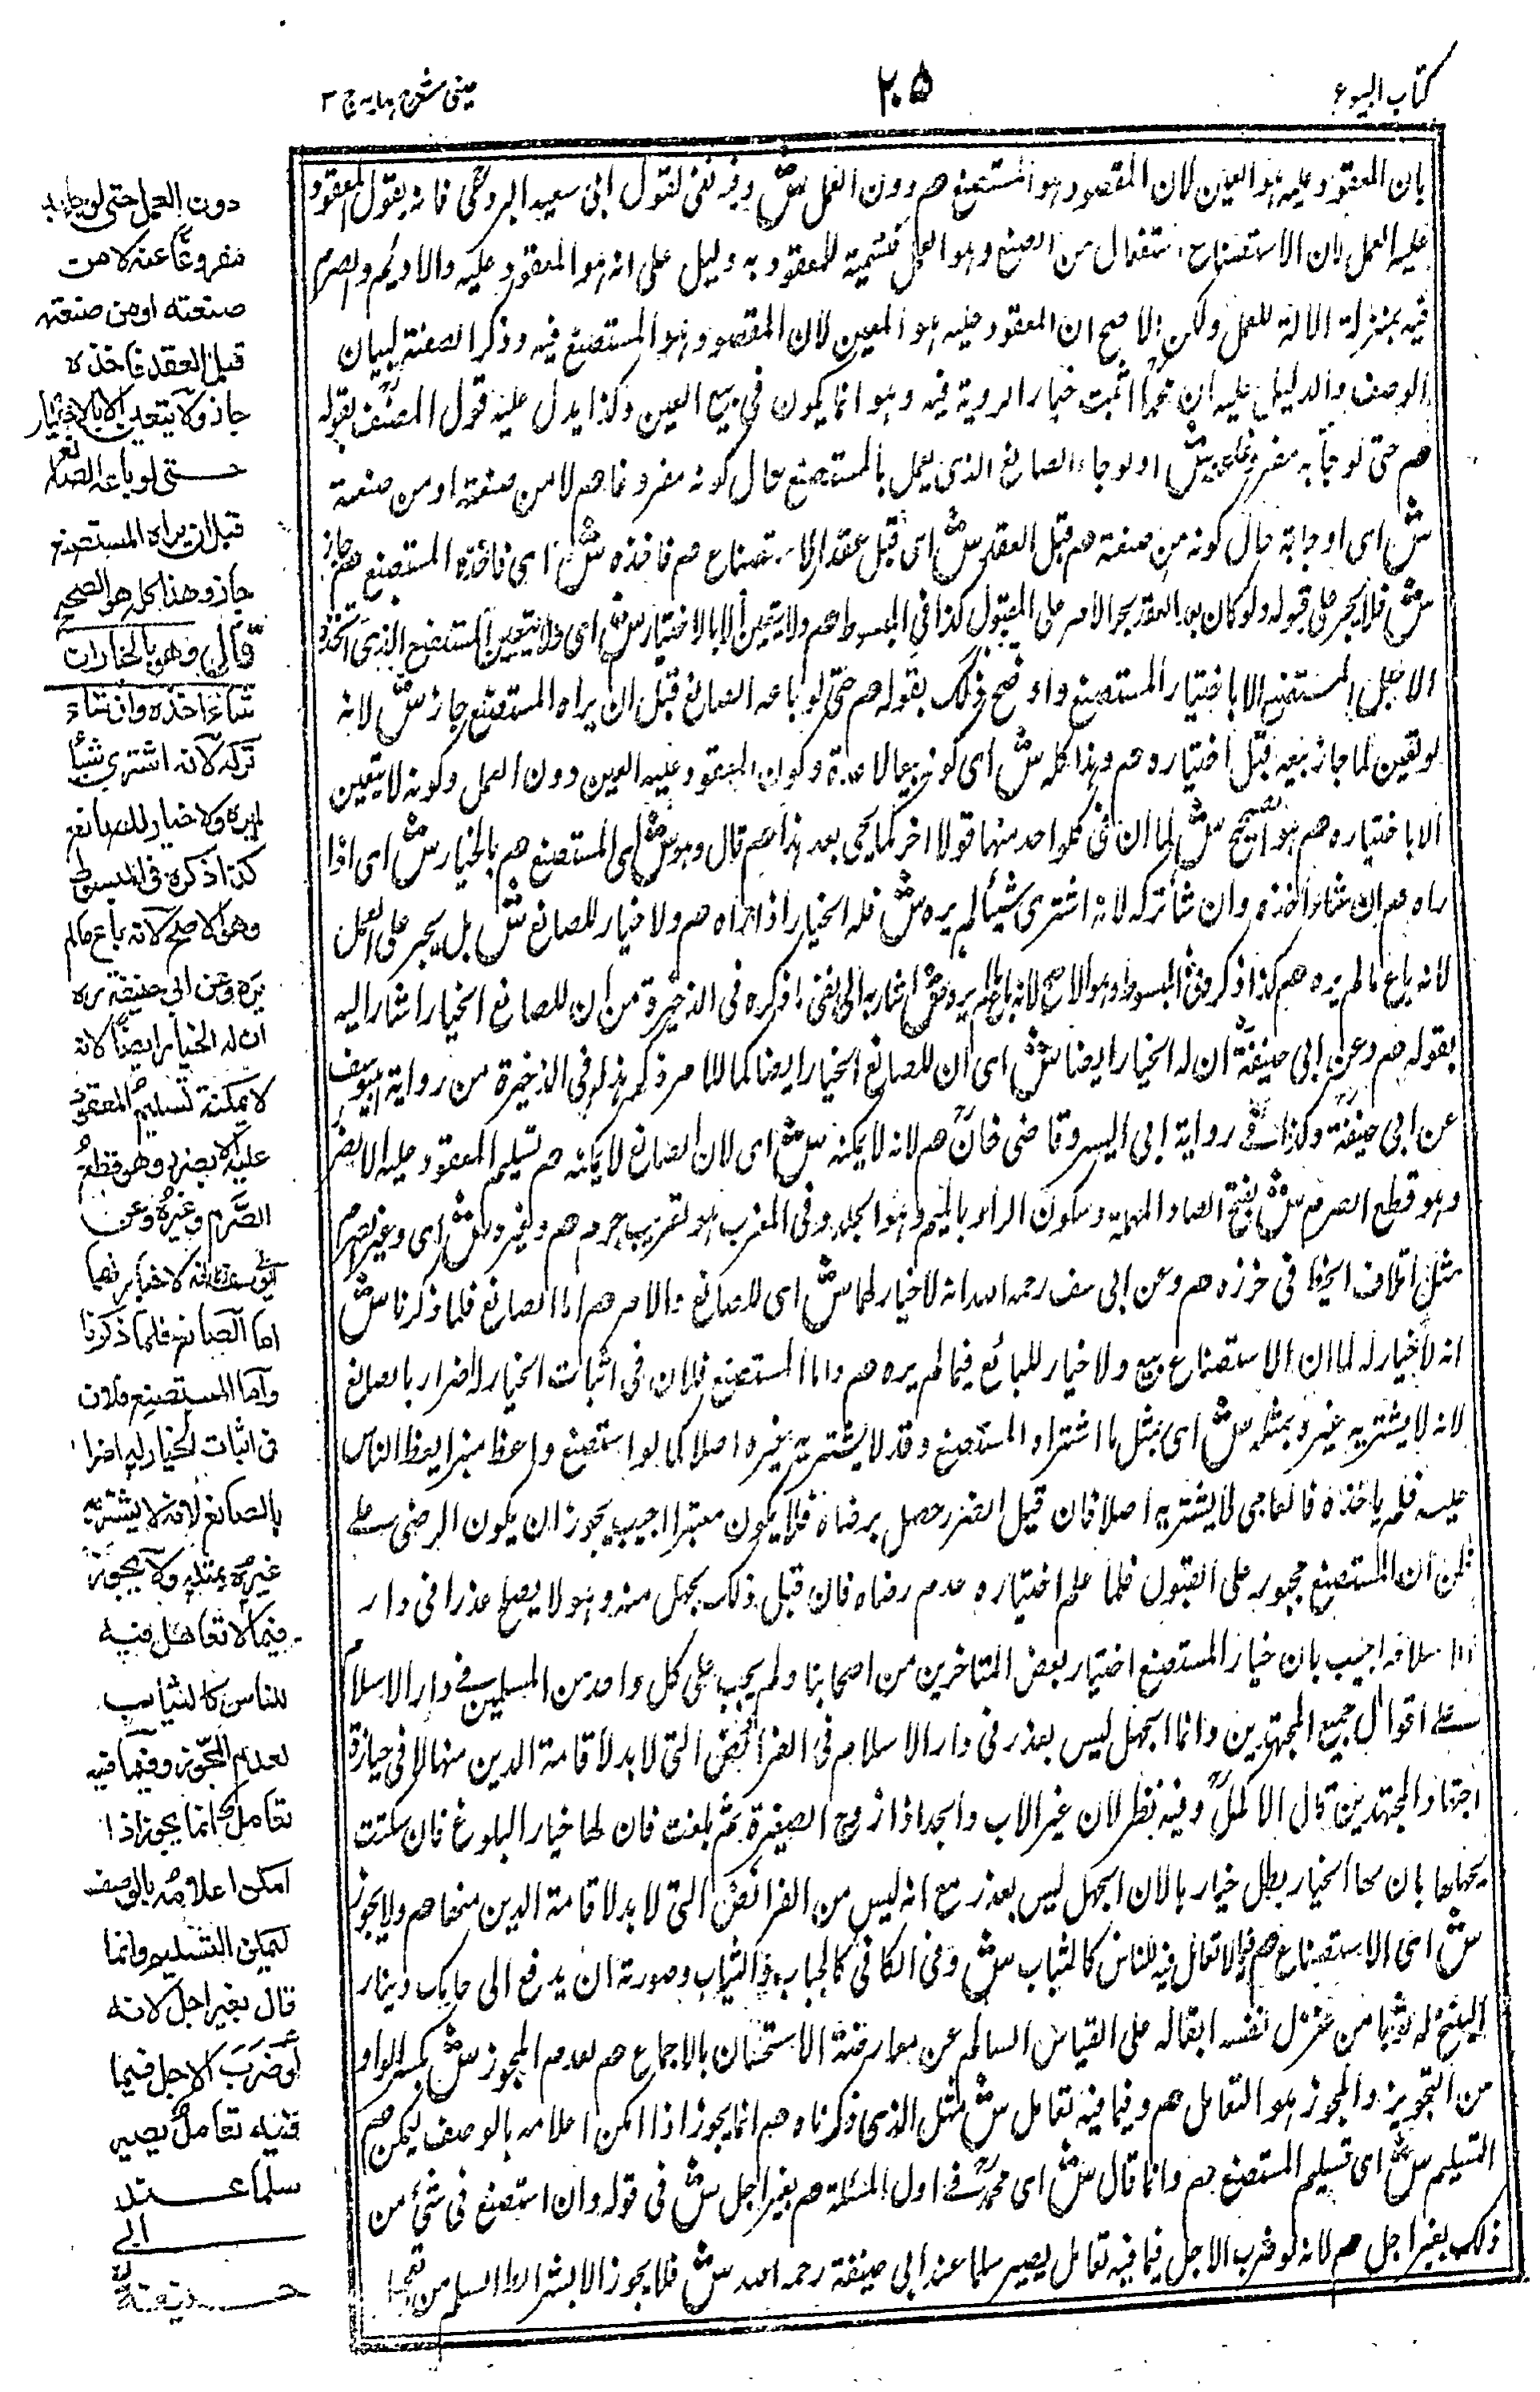 كتاب البيوع
٢٠٥
عينى شرح هدايه ج ٣
بان المعقود عليه هو العين لان المقصود هو المستصنع هم دون العمل ش وفيه نفى لقول ابى سعيد البردعى فانه يقول المعقود
عليه العمل لان الاستصناع استفعال من الصنع وهو العمل فتسمية المعقود به دليل على انه هو المعقود عليه والاديم والصرم
فيه بمنزلة الالة للعمل ولكن الاصح ان المعقود عليه هو العين لان المقصود هو المستصنع فيه وذكر الصنعة لبيان
الوصف والدليل عليه ان محمدا اثبت خيار الروية فيه وهو انما يكون فى بيع العين وكذا يدل عليه قول المصنف بقوله
هم حتى لو جاء به مفروغا عنه ش اى لو جاء الصانع الذى يعمل بالمستصنع حال كونه مفروغا هم لا من صنعته او من صنعته
ش اى او جاء به حال كونه من صنعته هم قبل العقد ش اى قبل عقد الاستصناع هم فاخذه ش اى فاخذه المستصنع هم جاز
ش فلا يجبر على قبوله ولو كان بعد العقد يجبر الامر على القبول كذا فى المبسوط هم ولا يتعين الا بالاختيار ش اى ولا يتعين المستصنع الذى اتخذه
لاجل المستصنع الا باختيار المستصنع واوضح ذلك بقوله هم حتى لو باعه الصانع قبل ان يراه المستصنع جاز ش لانه
لو تعين لما جاز بيعه قبل اختياره هم وهذا كله ش اى كونه بيعا لا عدة وكون المعقود عليه العين دون العمل وكونه لا يتعين
الا باختياره هم هو الصحيح ش لما ان فى كل واحد منها قولا اخر كما يجى بعد هذا هم قال وهو ش اى المستصنع هم بالخيار ش اى اذا
راه هم ان شاء اخذه وان شاء تركه لانه اشترى شيئا لم يره ش فله الخيار اذا راه هم ولا خيار للصانع ش بل يجبر على العمل
لانه باع ما لم يره هم كذا ذكره فى المبسوط وهو الاصح لانه باع ما لم يره ش اشار به الى نفى ما ذكره فى الذخيرة من ان للصانع الخيار اشار اليه
بقوله هم وعن ابى حنيفة ان له الخيار ايضا ش اى ان للصانع الخيار ايضا كما للامر ذكر هذا فى الذخيرة من رواية ابى يوسف
عن ابى حنيفة وكذا فى رواية ابى اليسر وقاضى خان هم لانه لا يمكنه ش اى لان الصانع لا يمكنه هم تسليم المعقود عليه الا بضرر
وهو قطع الصرم ش بفتح الصاد المهملة وسكون الراء بالميم وهو الجلد وفى المغرب هو تعريب چرم هم وغيره ش اى وغير الصرم
مثل اتلاف الخيط فى خرزه هم وعن ابى يوسف رحمه الله انه لا خيار لهما ش اى للصانع والامر هم اما الصانع فلما ذكرنا ش
انه لا خيار له لما ان الاستصناع بيع ولا خيار للبائع فيما لم يره هم واما المستصنع فلان فى اثبات الخيار له اضرار بالصانع
لانه لا يشتريه غيره بمثله ش اى بمثل ما اشتراه المستصنع وقد لا يشتريه غيره اصلا كما لو استصنع واعظ منبرا يعظ الناس
عليه فلم ياخذه فالعامى لا يشتريه اصلا فان قيل الضرر حصل برضاه فلا يكون معتبرا اجيب يجوز ان يكون الرضى على
ظن ان المستصنع مجبور على القبول فلما علم اختياره عدم رضاه فان قيل ذلك جهل منه وهو لا يصلح عذرا فى دار
الاسلام اجيب بان خيار المستصنع اختيار بعض المتاخرين من اصحابنا ولم يجب على كل واحد من المسلمين فى دار الاسلام
على اقوال جميع المجتهدين وانما الجهل ليس بعذر فى دار الاسلام فى الفرائض التى لا بد لاقامة الدين منها لا فى حيازة
اجتهاد المجتهدين قال الاكمل وفيه نظر لان غير الاب والجد اذا زوج الصغيرة ثم بلغت فان لها خيار البلوغ فان سكتت
بجهلها بان لها الخيار بطل خيارها لان الجهل ليس بعذر مع انه ليس من الفرائض التى لا بد لاقامة الدين منها هم ولا يجوز
ش اى الاستصناع هم فيما لا تعامل فيه للناس كالثياب ش وفى الكافى كالجباب والثياب وصورته ان يدفع الى حايك دينار
لينسج له ثوبا من غزل نفسه ابقاله على القياس السالم عن معارضة الاستحسان بالاجماع هم لعدم المجوز ش بكسر الواو
من التجويز والمجوز هو التعامل هم وفيما فيه تعامل ش مثل الذى ذكرناه هم انما يجوز اذا امكن اعلامه بالوصف ليمكن هم
التسليم ش اى تسليم المستصنع هم وانما قال ش اى محمد فى اول المسئلة هم بغير اجل ش فى قوله وان استصنع فى شئ من
ذلك بغير اجل هم لانه لو ضرب الاجل فيما فيه تعامل يصير سلما عند ابى حنيفة رحمه الله ش فلا يجوز الا بشرائط السلم من
دون العمل حتى لو جاء به
مفروغا عنه لا من
صنعته او من صنعته
قبل العقد فاخذه
جاز ولا يتعين الا بالاختيار
حتى لو باعه الصانع
قبل ان يراه المستصنع
جاز وهذا كله هو الصحيح
قال وهو بالخيار ان
شاء اخذه وان شاء
تركه لانه اشترى شيئا
لم يره ولا خيار للصانع
كذا ذكره فى المبسوط
وهو الاصح لانه باع ما لم
يره وعن ابى حنيفة ره
ان له الخيار ايضا لانه
لا يمكنه تسليم المعقود
عليه الا بضرر وهو قطع
الصرم وغيره وعن
ابى يوسف انه لا خيار لهما
اما الصانع فلما ذكرنا
واما المستصنع فلان
فى اثبات الخيار له اضرارا
بالصانع لانه لا يشتريه
غيره بمثله ولا يجوز
فيما لا تعامل فيه
للناس كالثياب
لعدم المجوز وفيما فيه
تعامل انما يجوز اذا
امكن اعلامه بالوصف
ليمكن التسليم وانما
قال بغير اجل لانه
لو ضرب الاجل فيما
فيه تعامل يصير
سلما عند
ابى
حنيفة